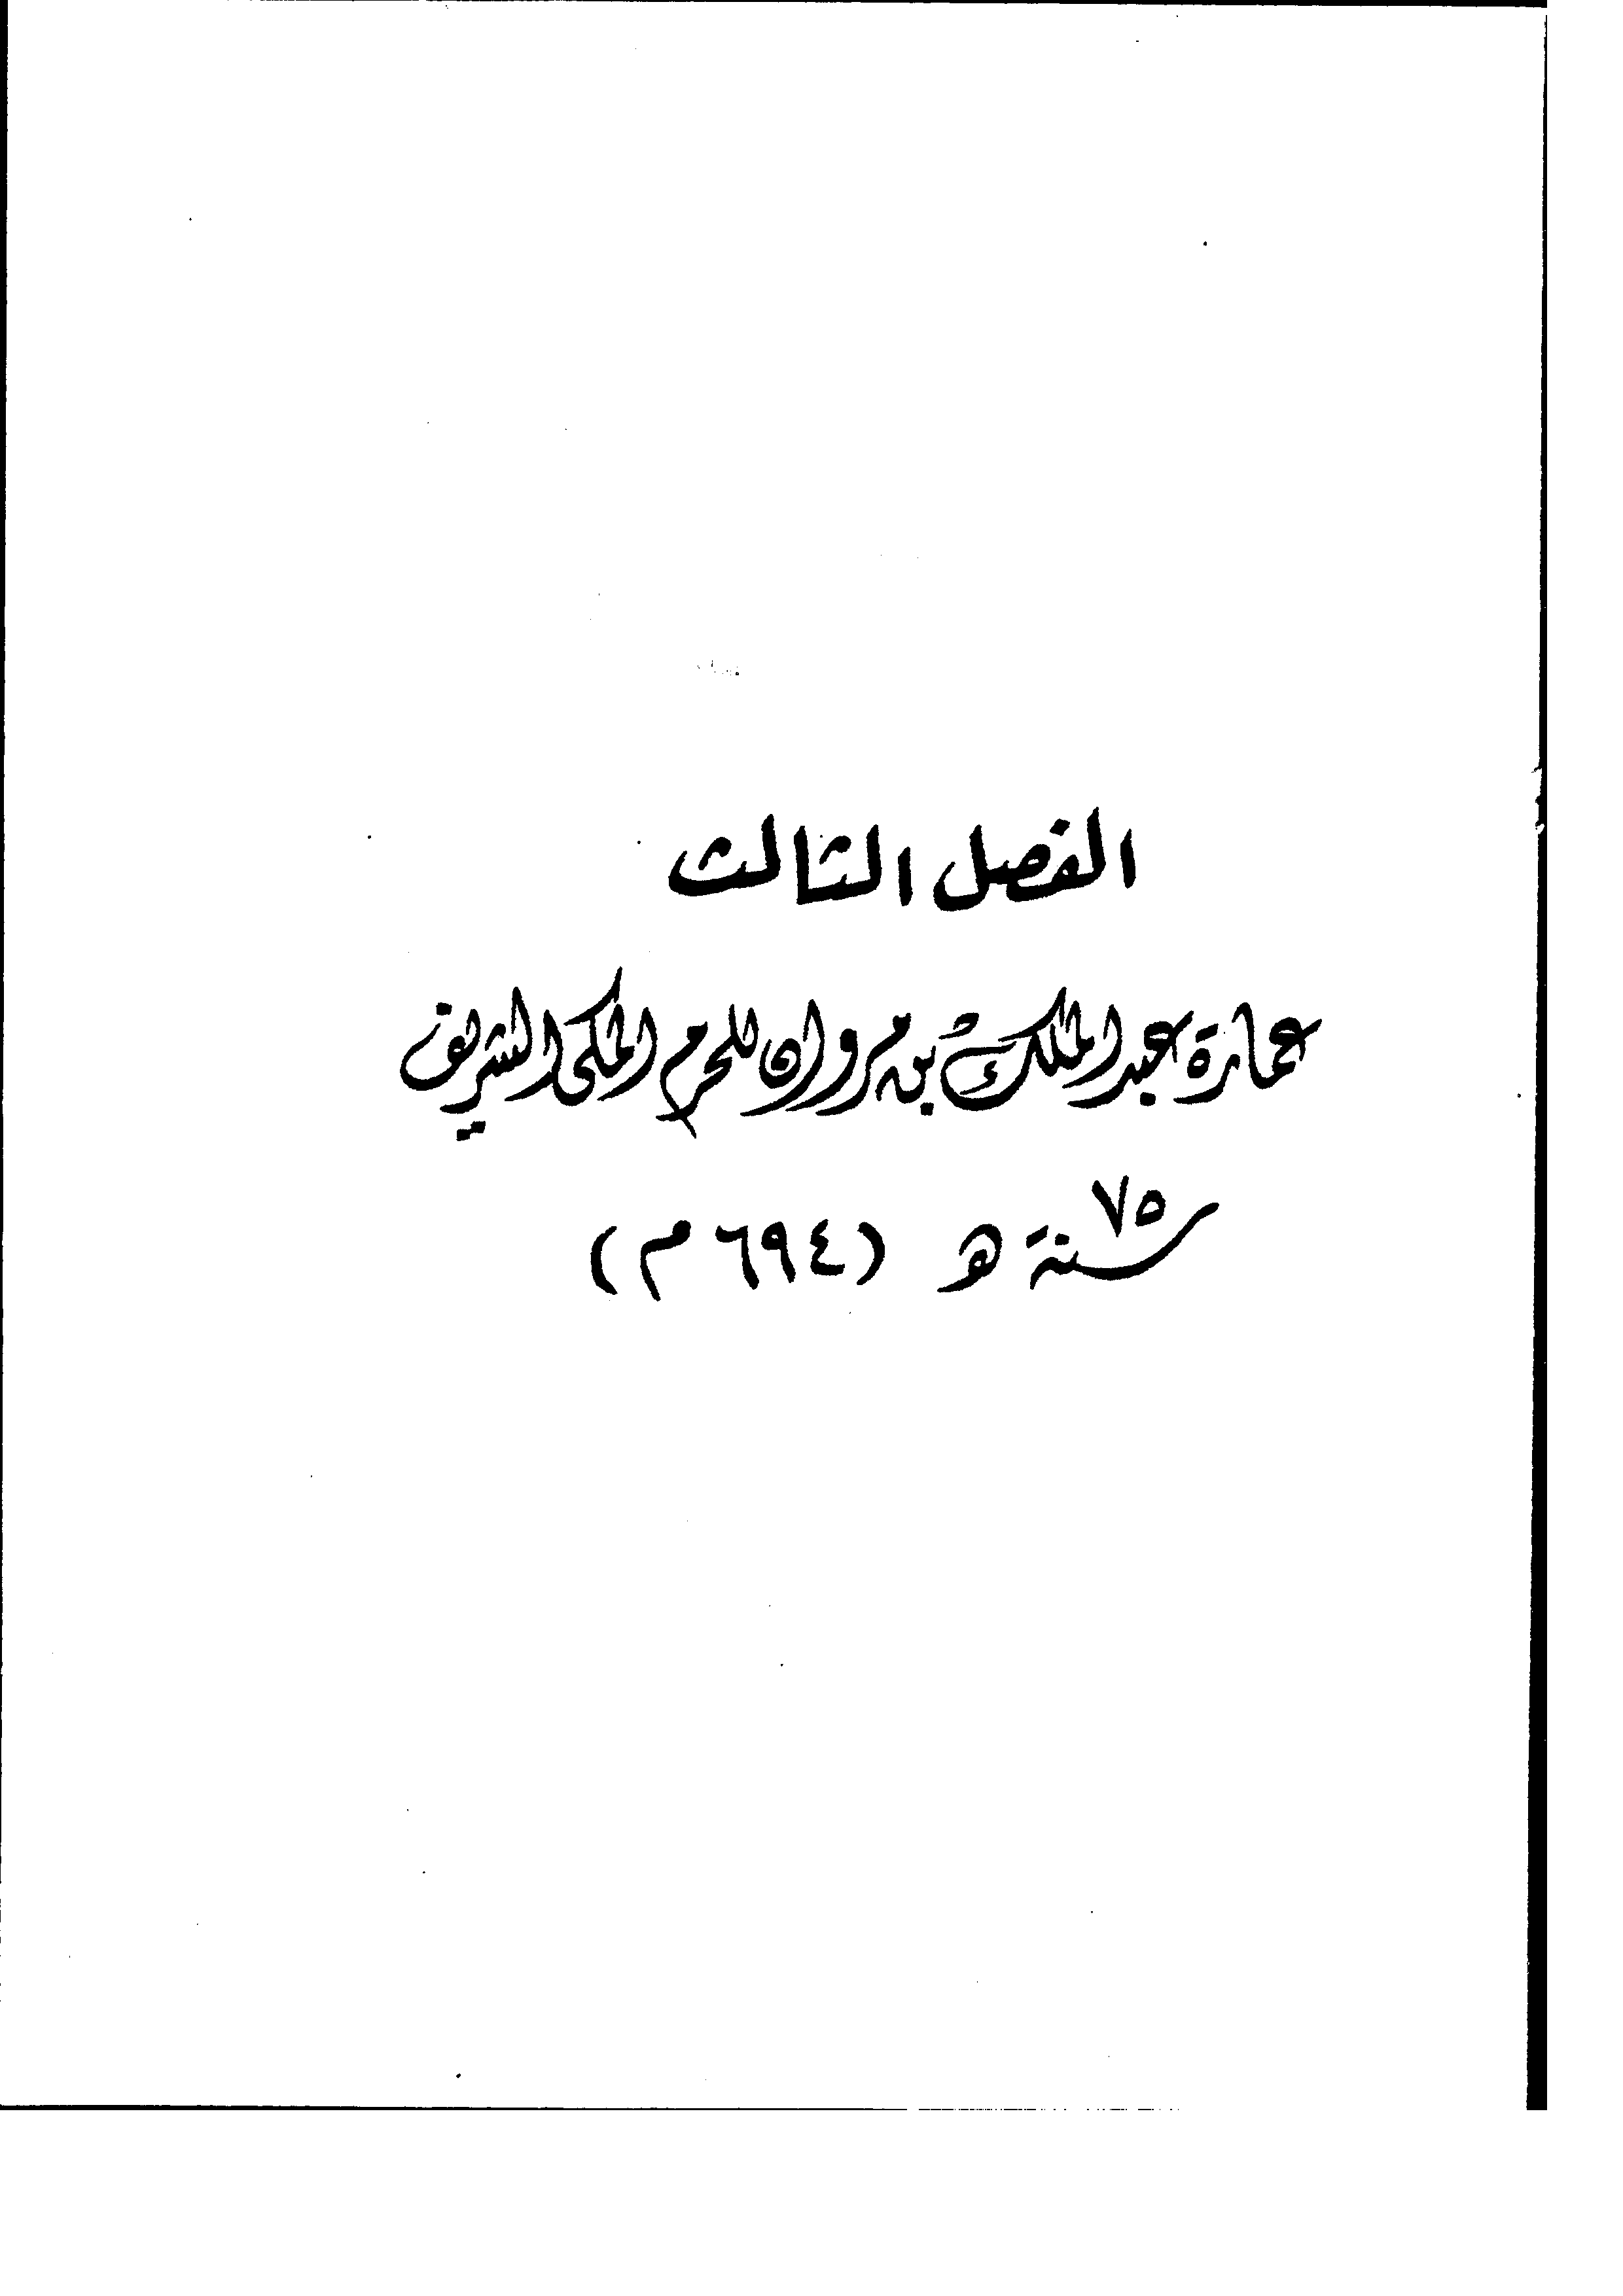 الفصل الثالث
عمارة عبد الملك بن مروان للحرم المكى الشريف
سنة ٧٥ هـ (٦٩٤ م)